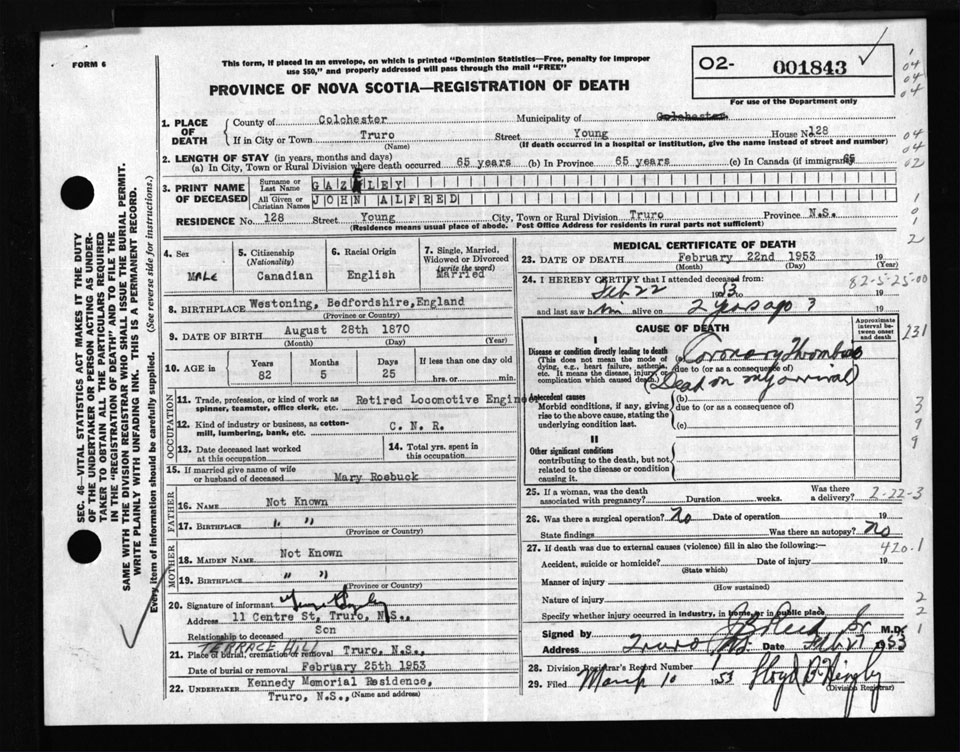 FORM 6
This form, if placed in an envelope, on which is printed "Dominion Statistics—Free, penalty for improper
use $50," and properly addressed will pass through the mail "FREE"
PROVINCE OF NOVA SCOTIA—REGISTRATION OF DEATH
O2- 001843
For use of the Department only
1. PLACE OF DEATH
County of Colchester Municipality of Colchester
If in City or Town Truro Street Young House No. 128
(Name) (If death occurred in a hospital or institution, give the name instead of street and number)
2. LENGTH OF STAY (in years, months and days)
(a) In City, Town or Rural Division where death occurred 65 years (b) In Province 65 years (c) In Canada (if immigrant) 65
3. PRINT NAME OF DECEASED
Surname or Last Name GAZELEY
All Given or Christian Names JOHN ALFRED
RESIDENCE No. 128 Street Young City, Town or Rural Division Truro Province N.S.
(Residence means usual place of abode. Post Office Address for residents in rural parts not sufficient)
4. Sex Male
5. Citizenship (Nationality) Canadian
6. Racial Origin English
7. Single, Married, Widowed or Divorced (write the word) Married
8. BIRTHPLACE Westoning, Bedfordshire, England
(Province or Country)
9. DATE OF BIRTH August 28th 1870
(Month) (Day) (Year)
10. AGE in Years 82 Months 5 Days 25 If less than one day old hrs. or min.
OCCUPATION
11. Trade, profession, or kind of work as spinner, teamster, office clerk, etc. Retired Locomotive Engine
12. Kind of industry or business, as cotton-mill, lumbering, bank, etc. C. N. R.
13. Date deceased last worked at this occupation
14. Total yrs. spent in this occupation
15. If married give name of wife or husband of deceased Mary Roebuck
FATHER
16. NAME Not Known
17. BIRTHPLACE " "
(Province or Country)
MOTHER
18. MAIDEN NAME Not Known
19. BIRTHPLACE " "
(Province or Country)
20. Signature of informant
Address 11 Centre St, Truro, N.S.,
Relationship to deceased Son
TERRACE HILL
21. Place of burial, cremation or removal Truro, N.S.,
Date of burial or removal February 25th 1953
22. UNDERTAKER Kennedy Memorial Residence,
Truro, N.S., (Name and address)
MEDICAL CERTIFICATE OF DEATH
23. DATE OF DEATH February 22nd 1953 19
(Month) (Day) (Year)
24. I HEREBY CERTIFY that I attended deceased from:
Feb 22 1953 to 19
and last saw him alive on 2 yrs ago ? 19
82-5-25-00
CAUSE OF DEATH
Approximate interval between onset and death
231
I
Disease or condition directly leading to death
(This does not mean the mode of dying, e.g., heart failure, asthenia, etc. It means the disease, injury, or complication which caused death.)
Coronary Thrombosis
due to (or as a consequence of)
(Dead on my arrival)
Antecedent causes
Morbid conditions, if any, giving rise to the above cause, stating the underlying condition last.
(b)
due to (or as a consequence of)
(c)
II
Other significant conditions
contributing to the death, but not related to the disease or condition causing it.
25. If a woman, was the death associated with pregnancy? Duration weeks. Was there a delivery?
2-22-3
26. Was there a surgical operation? No Date of operation 19
State findings Was there an autopsy? No
27. If death was due to external causes (violence) fill in also the following:—
420.1
Accident, suicide or homicide? Date of injury 19
(State which)
Manner of injury
(How sustained)
Nature of injury
Specify whether injury occurred in industry, in home, or in public place
Signed by J B Reid Sr M.D.
Address Truro NS. Date Feb 27 1953
28. Division Registrar's Record Number
29. Filed March 10 1953
(Division Registrar)
SEC. 46—VITAL STATISTICS ACT MAKES IT THE DUTY
OF THE UNDERTAKER OR PERSON ACTING AS UNDER-
TAKER TO OBTAIN ALL THE PARTICULARS REQUIRED
IN THE "REGISTRATION OF DEATH" AND TO FILE THE
SAME WITH THE DIVISION REGISTRAR WHO SHALL ISSUE THE BURIAL PERMIT.
WRITE PLAINLY WITH UNFADING INK. THIS IS A PERMANENT RECORD.
Every item of information should be carefully supplied. (See reverse side for instructions.)